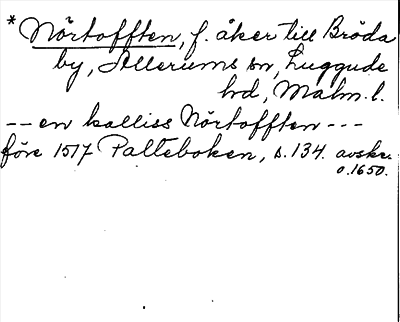 * Nörtofften, f. åker till Bröda
by, Alleriums sn, Luggude
hd, Malm. l.
-- en kalliss Nörtofften ---
före 1517 Palteboken, s. 134. avskr.
o. 1650.